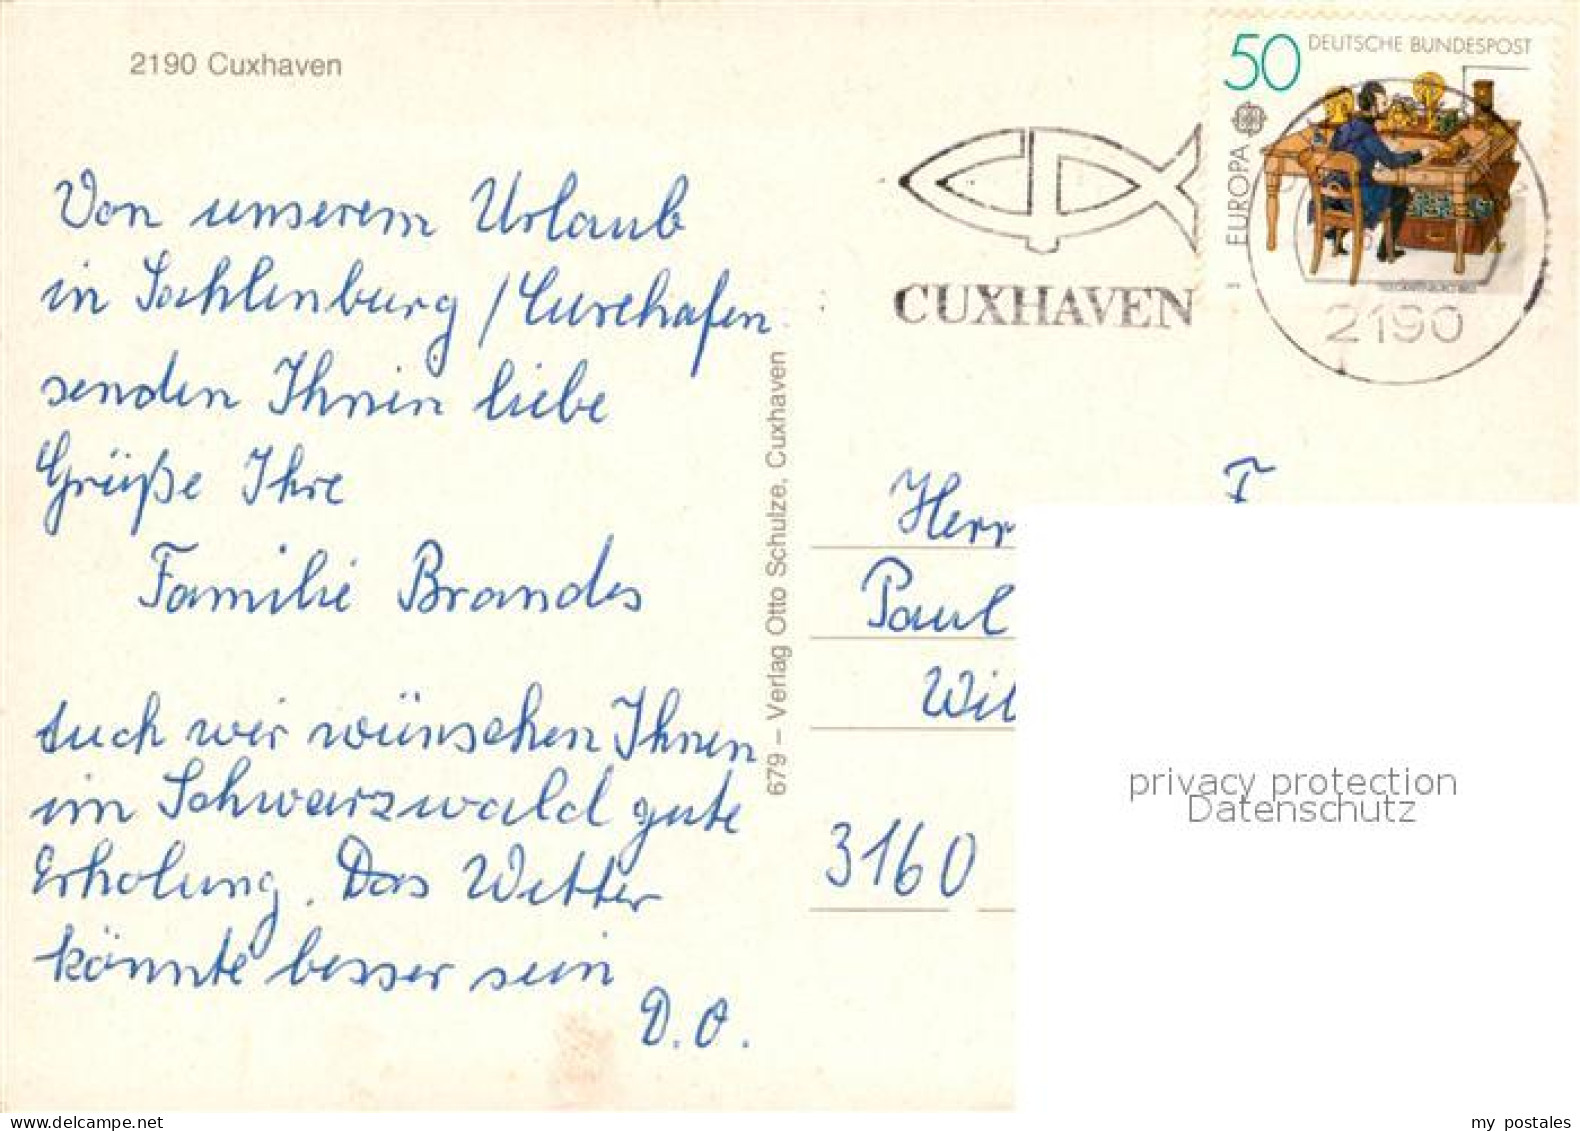 2190 Cuxhaven
Von unserem Urlaub
in Sahlenburg / Cuxehafen
senden Ihnen liebe
Grüße Ihre
Familie Brandes
Auch wir wünschen Ihnen
im Schwarzwald gute
Erholung. Das Wetter
könnte besser sein
D.O.
679 – Verlag Otto Schulze, Cuxhaven
CUXHAVEN
50 DEUTSCHE BUNDESPOST
EUROPA
2190
Herr
Paul
Wil
3160
privacy protection
Datenschutz
my postales